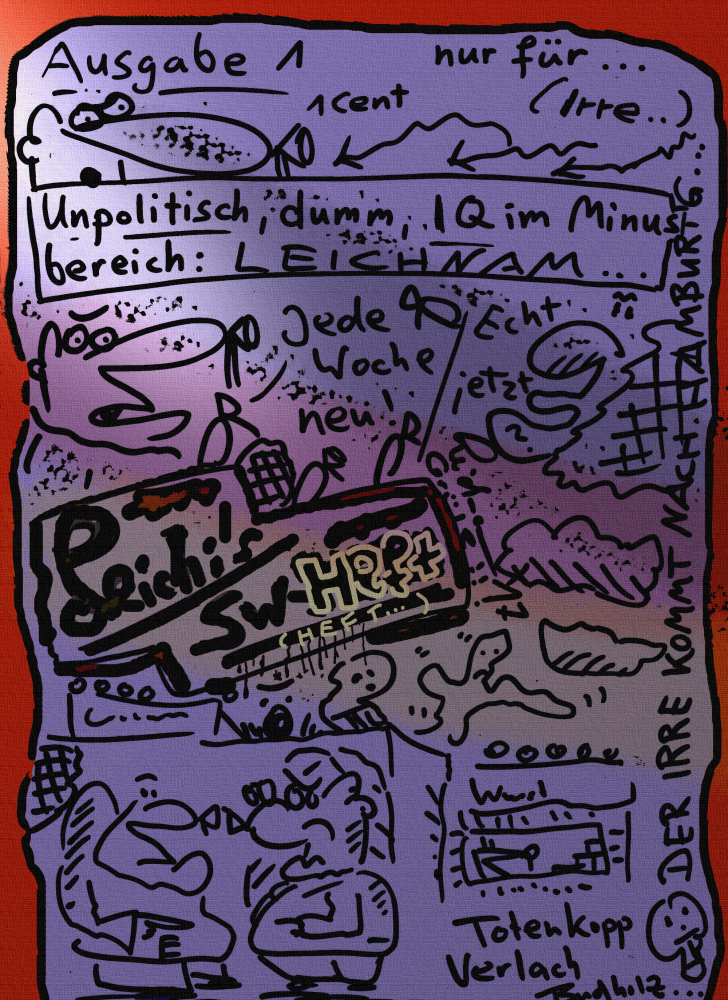 Ausgabe 1
nur für ...
(Irre..)
1 cent
Unpolitisch, dumm, IQ im Minus
bereich: LEICHNAM...
Jede
Woche
neu
Echt
jetzt
?
Leichi's
SW-HEFt
(HEFT...)
DER IRRE KOMMT NACH HAMBURG...
Totenkopp
Verlach